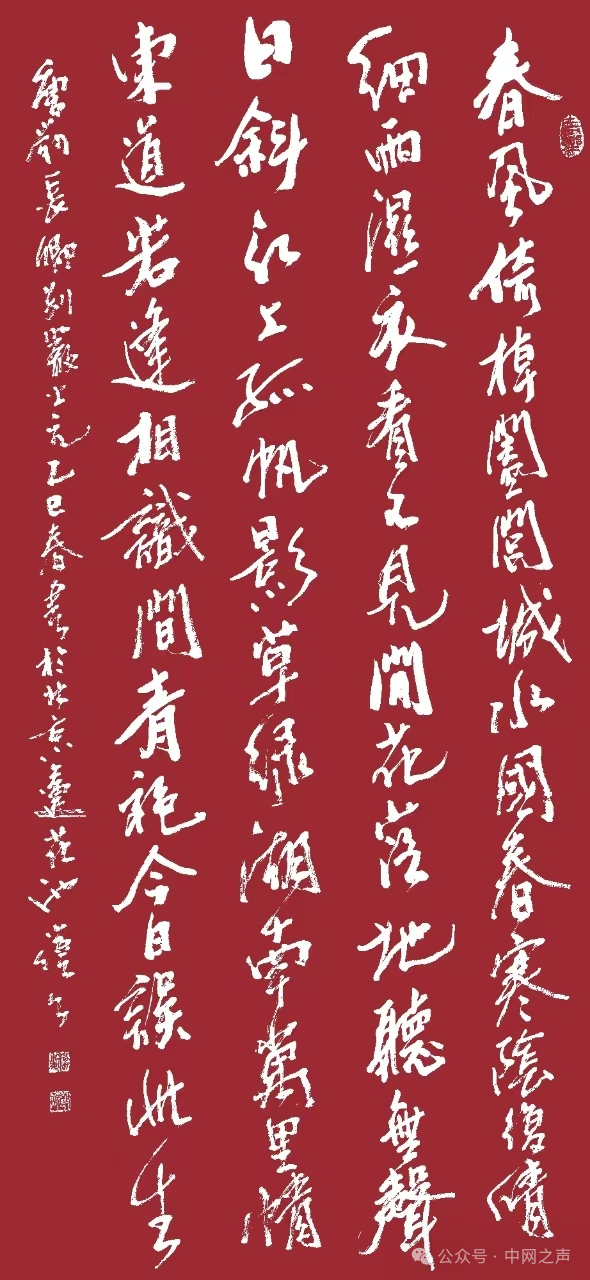 春風倚棹闔閭城水國春寒陰復晴
細雨濕衣看不見閒花落地聽無聲
日斜江上孤帆影草綠湖南萬里情
東道若逢相識間青袍今日誤此生
唐劉長卿別嚴士元乙巳春書於北京蓮花池
公众号·中网之声